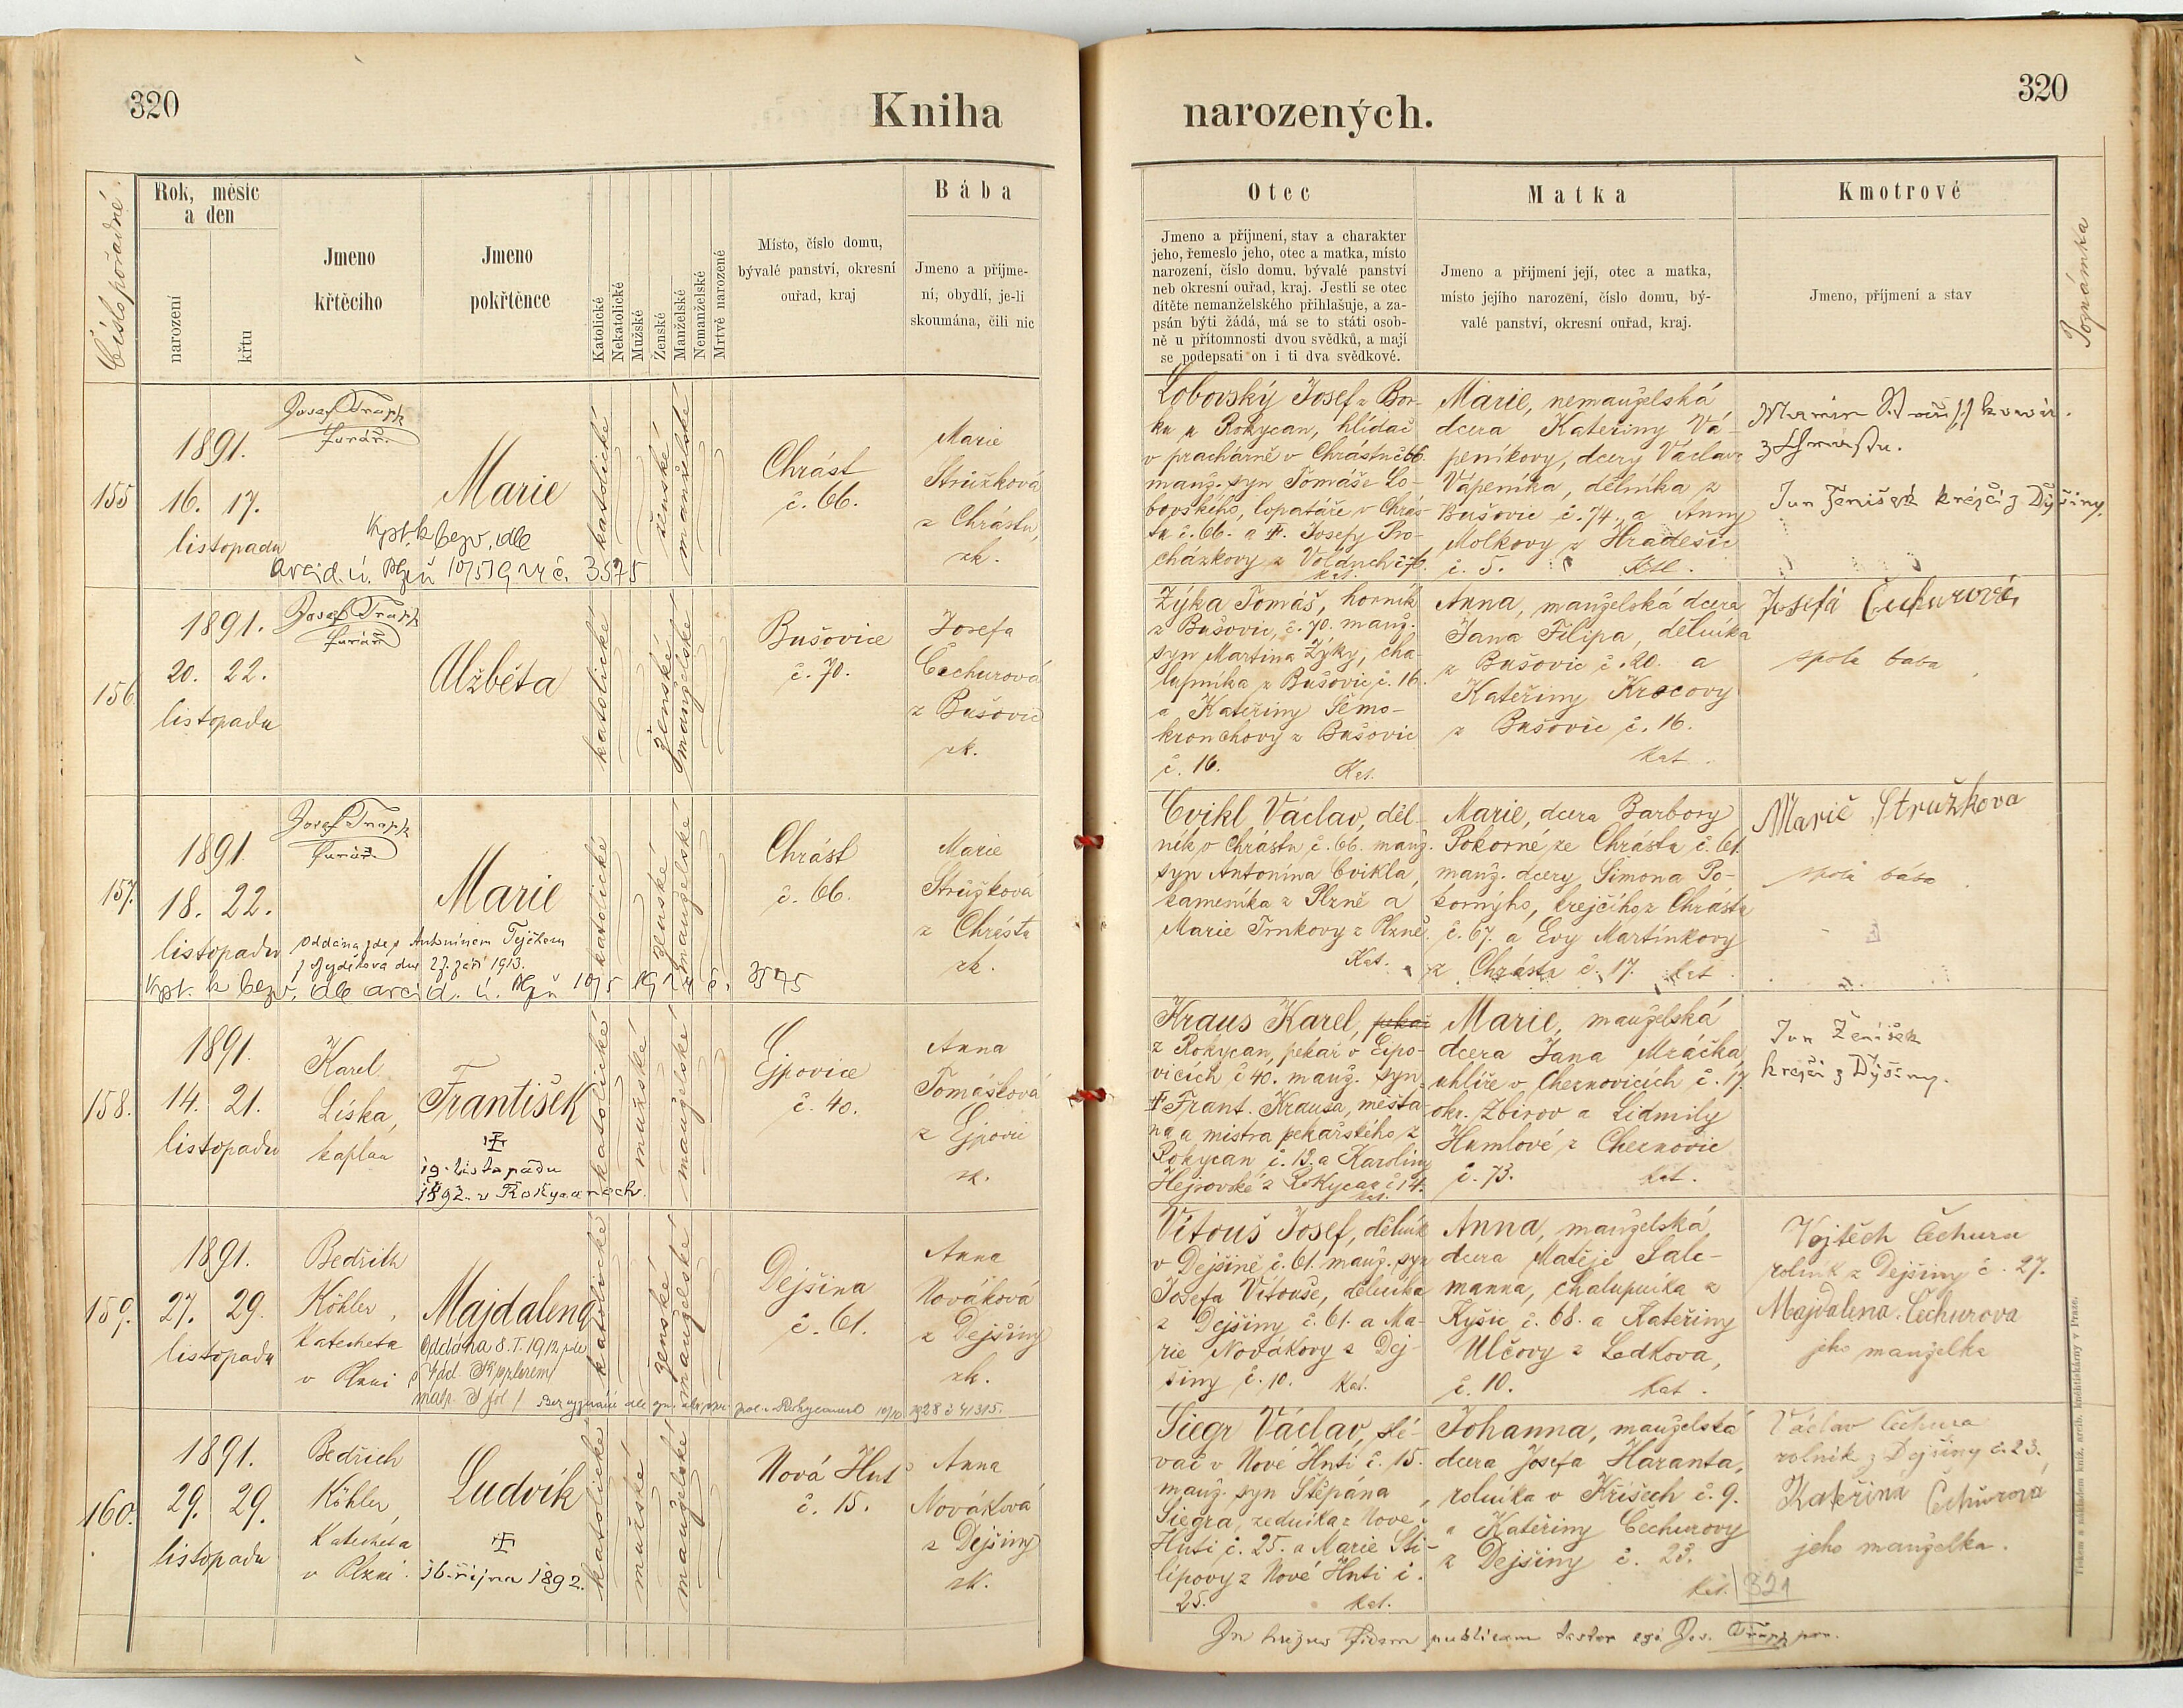 320
Kniha
narozených.
320
Číslo pořadné
Rok, měsíc
a den
narození
křtu
Jmeno
křtěcího
Jmeno
pokřtěnce
Katolické
Nekatolické
Mužské
Ženské
Manželské
Nemanželské
Mrtvě narozené
Místo, číslo domu,
bývalé panství, okresní
ouřad, kraj
Bába
Jmeno a příjme-
ní, obydlí, je-li
skoumána, čili nic
Otec
Jmeno a příjmení, stav a charakter
jeho, řemeslo jeho, otec a matka, místo
narození, číslo domu. bývalé panství
neb okresní ouřad, kraj. Jestli se otec
dítěte nemanželského přihlašuje, a za-
psán býti žádá, má se to státi osob-
ně u přítomnosti dvou svědků, a mají
se podepsati on i ti dva svědkové.
Matka
Jmeno a příjmení její, otec a matka,
místo jejího narození, číslo domu, bý-
valé panství, okresní ouřad, kraj.
Kmotrové
Jmeno, příjmení a stav
Poznámka
155
1891.
16. 17.
listopadu
Josef Trapp
farář.
Marie
Vyst. k bezv. dle
katolické
ženské
manželské
Chrást
č. 66.
Marie
Strůžková
z Chrástu,
zk.
Lobovský Josef z Bor-
ku u Rokycan, hlídač
v prachárně v Chrástu č. 66.
manž. syn Tomáše Lo-
bovského, lopatáře v Chrás-
tu č. 66. a Josefy Pro-
cházkovy z
Marie, nemanželská
dcera Kateřiny Vá-
peníkovy, dcery Václava
Vápeníka, dělníka z
Bušovic č. 74. a Anny
Molkovy z Hradešic
č. 5. kat.
z Chrástu.
Jan Ženíšek krejčí z Dýšiny.
156
1891.
20. 22.
listopadu
Josef Trapp
farář
Alžběta
katolické
ženské
manželské
Bušovice
č. 70.
Josefa
Čechurová
z Bušovic
zk.
Zýka Tomáš, horník
z Bušovic, č. 70. manž.
syn Martina Zýky, cha-
lupníka z Bušovic č. 16.
a Kateřiny Šemo-
z Bušovic
č. 16. Kat.
Anna, manželská dcera
Jana Filipa, dělníka
z Bušovic č. 20. a
Kateřiny Krocovy
z Bušovic č. 16.
kat.
Josefa Čechurová
spolu bába
157.
1891.
18. 22.
listopadu
Josef Trapp
farář
Marie
Oddána zde s Antonínem Tejčkem
dne 27. září 1913.
katolické
ženské
manželské
Chrást
č. 66.
Marie
Strůžková
z Chrástu
zk.
Cvikl Václav, děl-
ník v Chrástu č. 66. manž.
syn Antonína Cvikla,
kameníka z Plzně a
Marie Trnkovy z Plzně.
Kat.
Marie, dcera Barbory
Pokorné ze Chrástu č. 61.
manž. dcery Šimona Po-
korného, krejčího z Chrástu
č. 67. a Evy Martínkovy
z Chrástu č. 17. kat.
Marie Stružkova
spolu bába
158.
1891.
14. 21.
listopadu
Karel
Líska,
kaplan
František
19. listopadu
1892. v Rokycanech.
katolické
mužské
manželské
Ejpovice
č. 40.
Anna
Tomášková
z Ejpovic
zk.
Kraus Karel, pekař
z Rokycan, pekař v Eipo-
vicích č. 40. manž. syn
Frant. Krausa, měšťa-
na a mistra pekařského z
Rokycan č. 13. a Karoliny
Hejrovské z Rokycan č. 14.
kat.
Marie, manželská
dcera Jana Mráčka
uhlíře v Cheznovicích č. 17.
okr. Zbirov a Lidmily
Humlové z Cheznovic
č. 73. kat.
Jan Ženíšek
krejčí z Dýšiny.
159.
1891.
27. 29.
listopadu
Bedřich
Köhler,
Katecheta
v Plzni
Majdalena
Oddána 8. I. 1912 zde
katolické
ženské
manželské
Dejšina
č. 61.
Anna
Nováková
z Dejšiny
zk.
Vítouš Josef, dělník
v Dejšině č. 61. manž. syn
Josefa Vítouše, dělníka
z Dejšiny č. 61. a Ma-
rie Novákovy z Dej-
šiny č. 10. kat.
Anna, manželská
dcera Matěje Salc-
manna, chalupníka z
Kyšic č. 68. a Kateřiny
Ulčovy z Ledkova,
č. 10. kat.
Vojtěch Čechura
rolník z Dejšiny č. 27.
Majdalena Čechurova
jeho manželka
160.
1891.
29. 29.
listopadu
Bedřich
Köhler,
Katecheta
v Plzni.
Ludvík
16. října 1892.
katolické
mužské
manželské
Nová Huť
č. 15.
Anna
Nováková
z Dejšiny
zk.
Siegr Václav, slé-
vač v Nové Huti č. 15.
manž. syn Štěpána
Siegra, zedníka z Nové
Huti č. 25. a Marie Sti-
lipovy z Nové Huti č.
25. kat.
Johanna, manželská
dcera Josefa Haranta,
rolníka v Kříšech č. 9.
a Kateřiny Čechurovy
z Dejšiny č. 23.
kat.
Václav Čechura
rolník z Dejšiny č. 23.
Kateřina Čechurová
jeho manželka.
321
In hujus fidem publicam testor ego Jos. Trapp